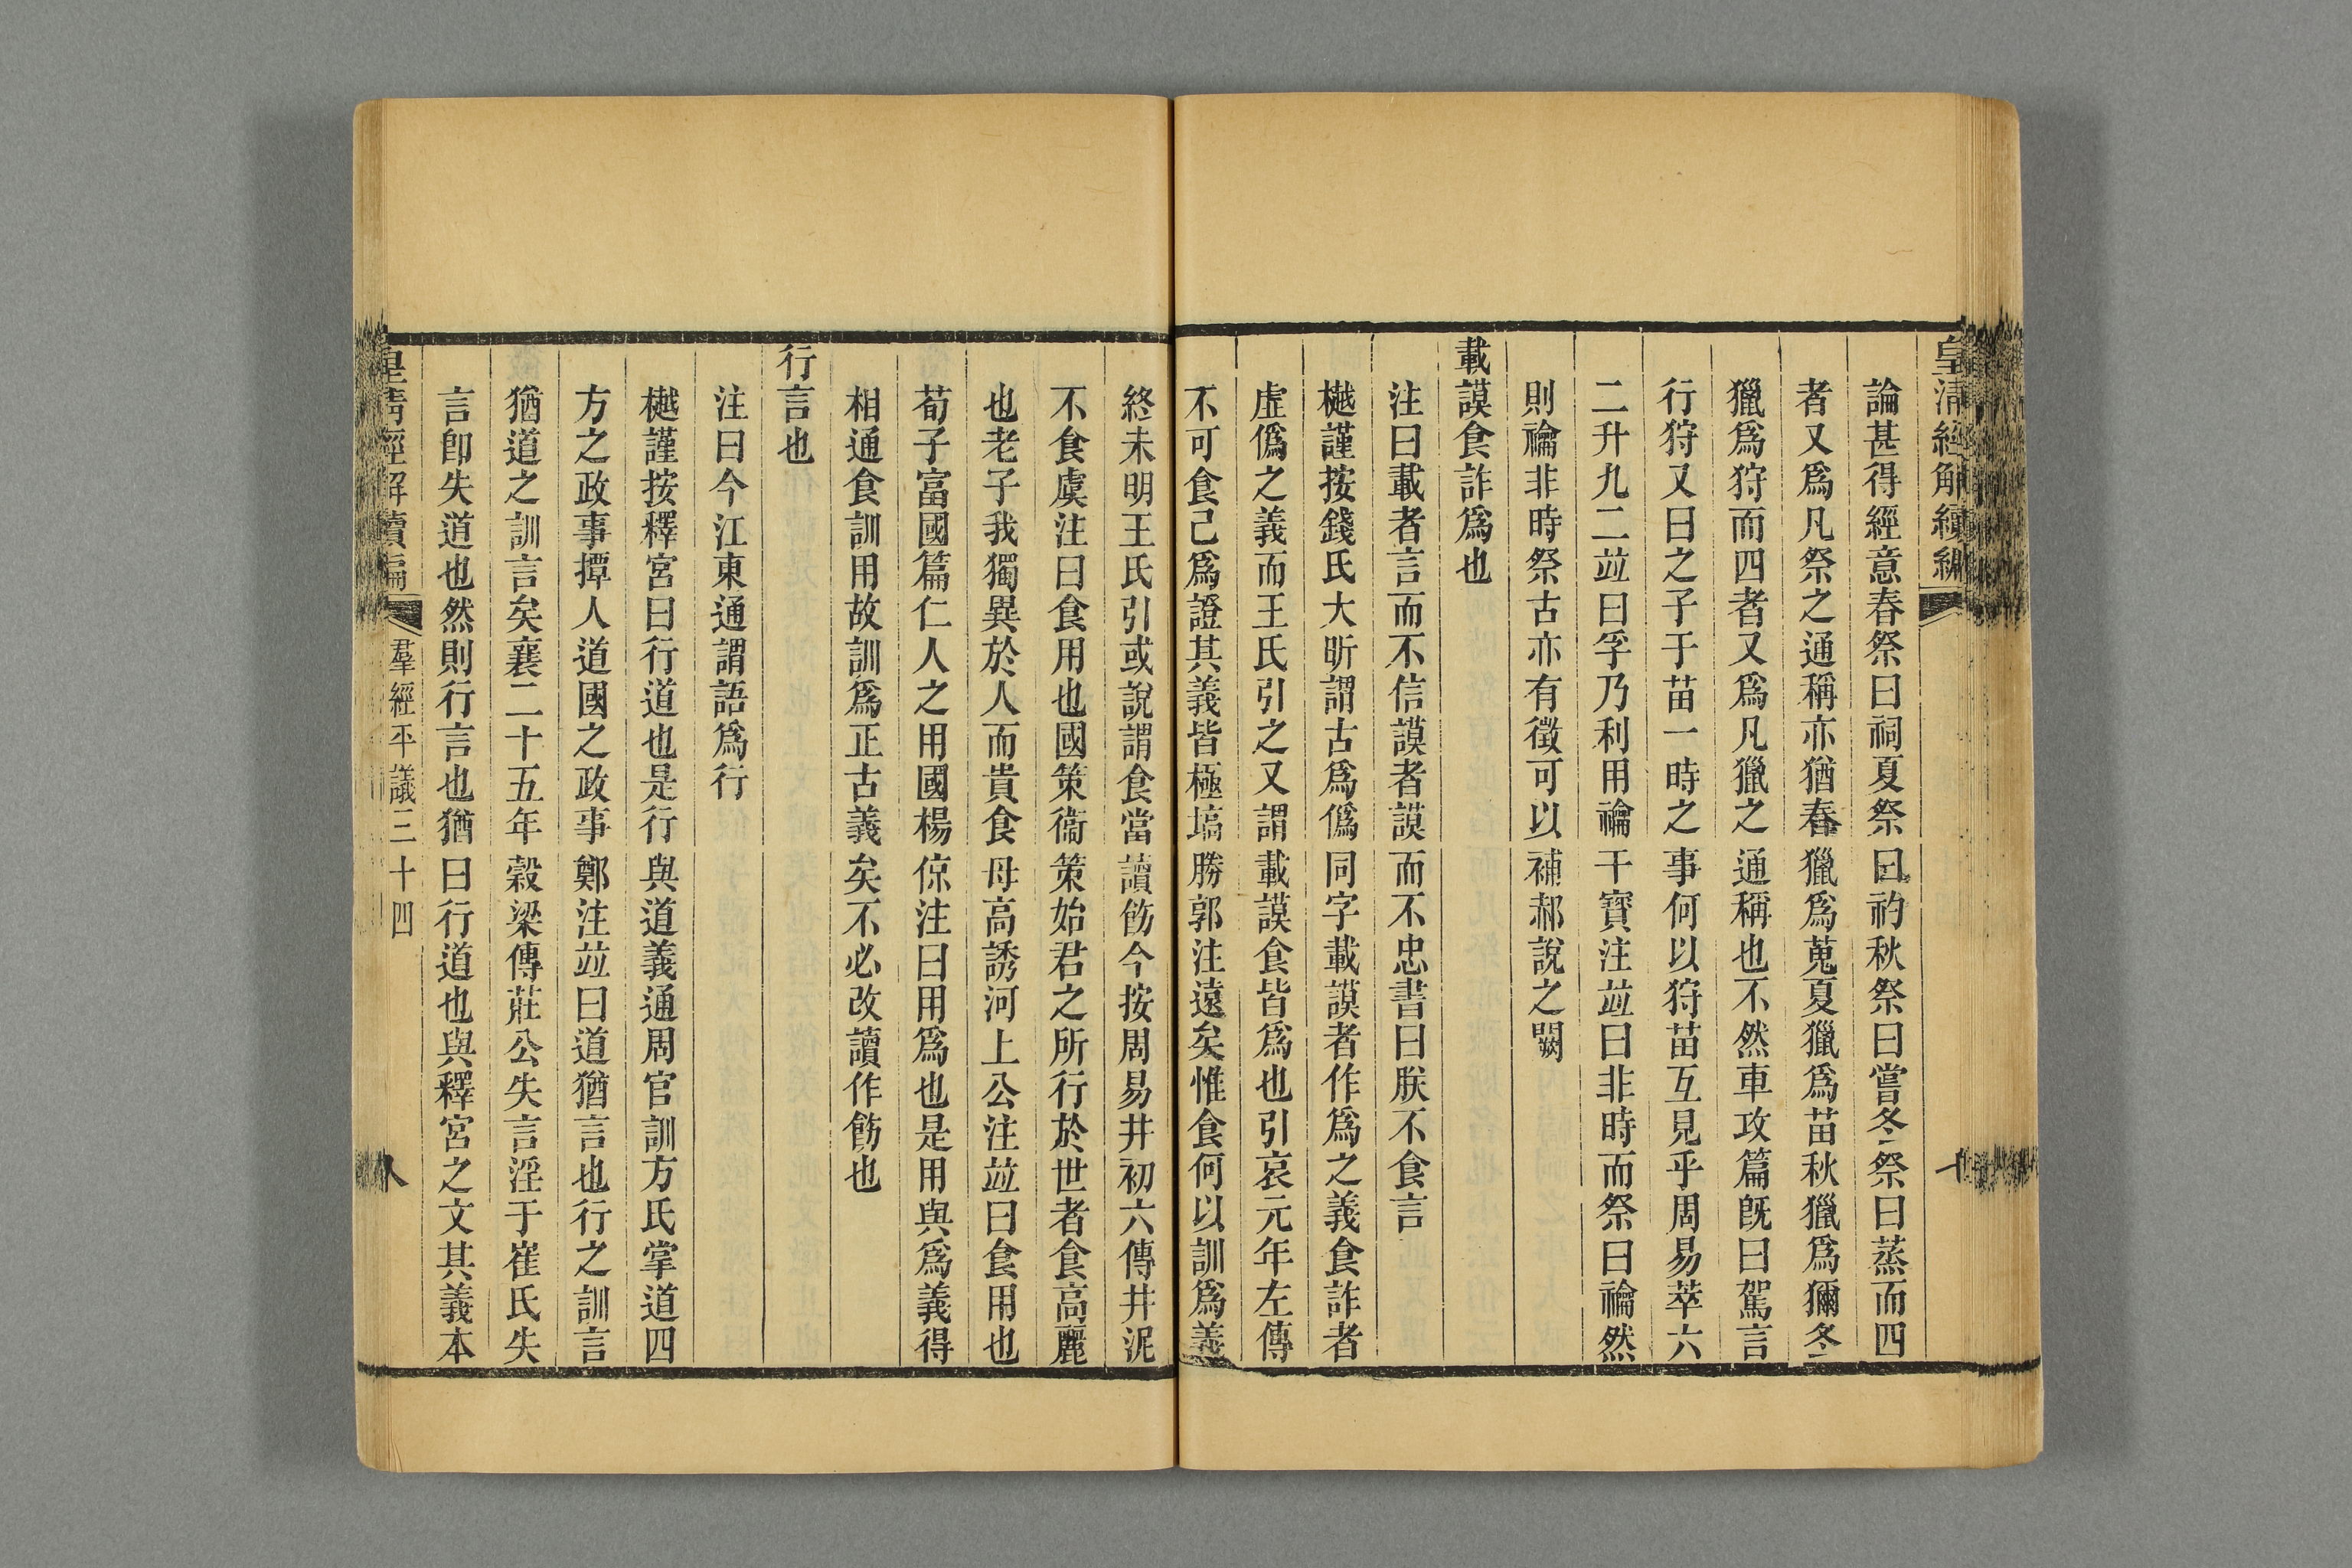 皇清經解續編
論甚得經意春祭曰祠夏祭曰礿秋祭曰嘗冬祭曰蒸而四
者又爲凡祭之通稱亦猶春獵爲蒐夏獵爲苗秋獵爲獮冬
獵爲狩而四者又爲凡獵之通稱也不然車攻篇旣曰駕言
行狩又曰之子于苗一時之事何以狩苗互見乎周易萃六
二升九二竝曰孚乃利用禴干寶注竝曰非時而祭曰禴然
則禴非時祭古亦有徵可以補郝說之闕
載謨食詐爲也
注曰載者言而不信謨者謨而不忠書曰朕不食言
樾謹按錢氏大昕謂古爲僞同字載謨者作爲之義食詐者
虛僞之義而王氏引之又謂載謨食皆爲也引哀元年左傳
不可食已爲證其義皆極塙勝郭注遠矣惟食何以訓爲義
終未明王氏引或說謂食當讀飭今按周易井初六傳井泥
不食虞注曰食用也國策衞策始君之所行於世者食高麗
也老子我獨異於人而貴食母高誘河上公注竝曰食用也
荀子富國篇仁人之用國楊倞注曰用爲也是用與爲義得
相通食訓用故訓爲正古義矣不必改讀作飭也
行言也
注曰今江東通謂語爲行
樾謹按釋宮曰行道也是行與道義通周官訓方氏掌道四
方之政事撢人道國之政事鄭注竝曰道猶言也行之訓言
猶道之訓言矣襄二十五年穀梁傳莊公失言淫于崔氏失
言卽失道也然則行言也猶曰行道也與釋宮之文其義本
皇清經解續編
羣經平議三十四
八